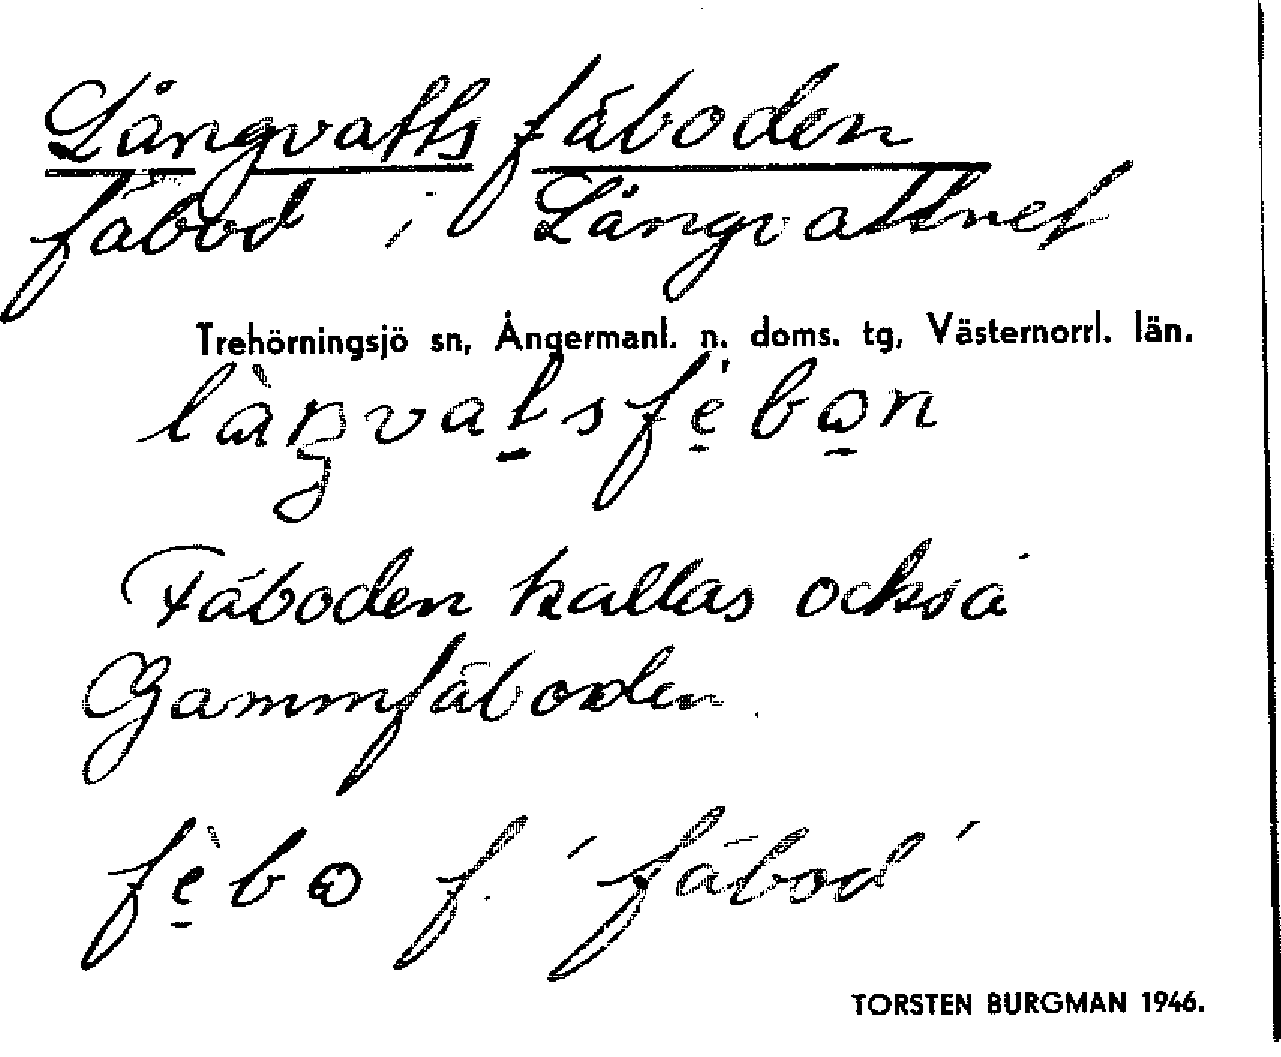 Långvattsfäboden
fäbod i Långvattnet
Trehörningsjö sn, Ångermanl. n. doms. tg, Västernorrl. län.
Fäboden kallas också
Gammfäboden.
f. 'fäbod'
TORSTEN BURGMAN 1946.